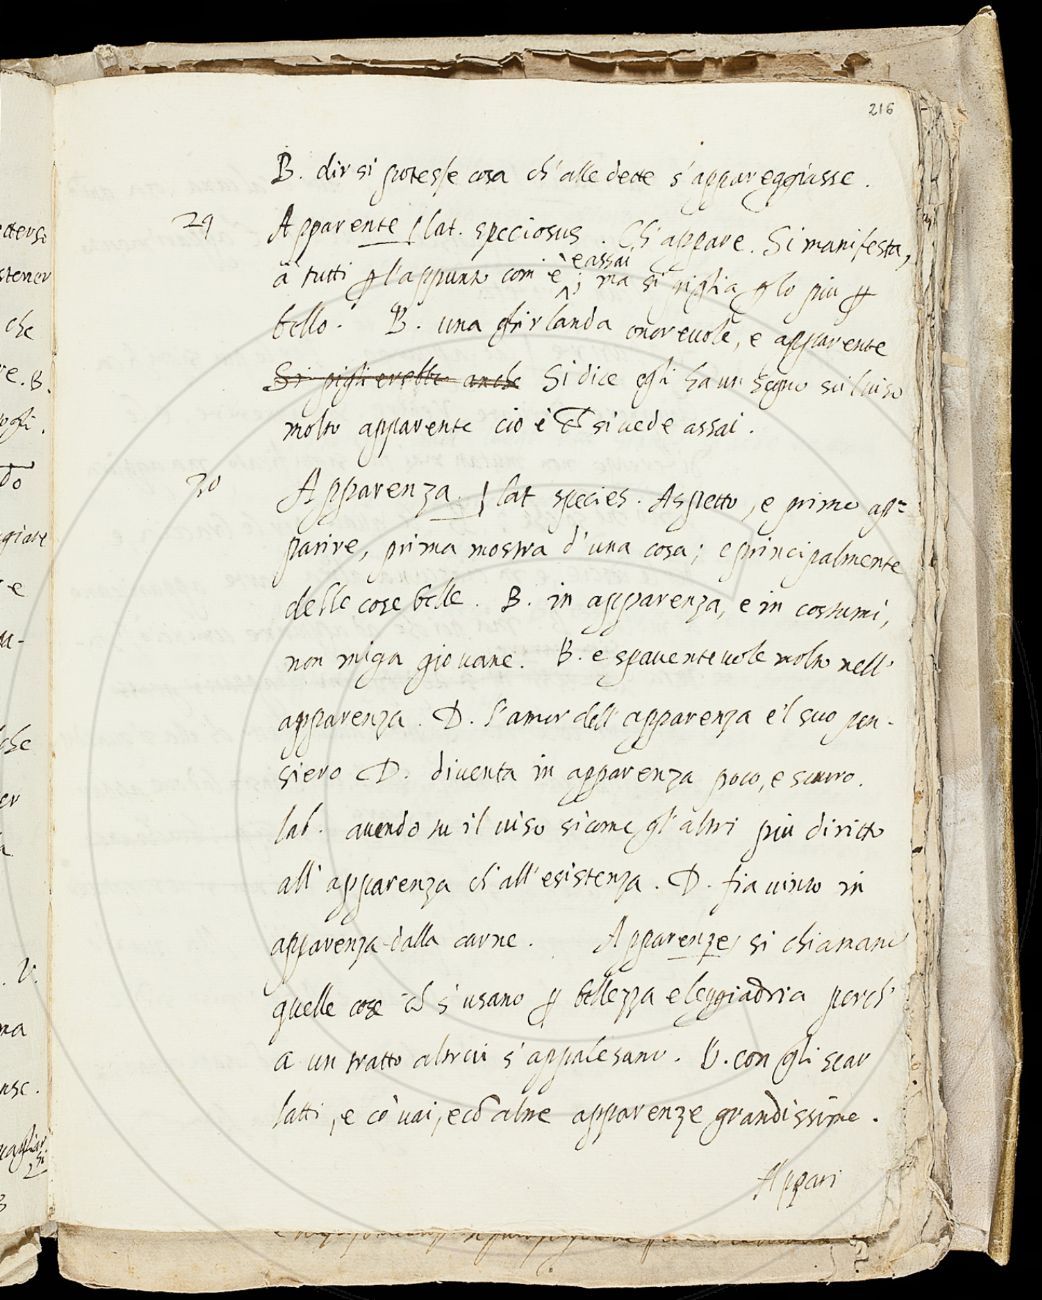 216
B. dirsi potesse cosa ch'alle dette s'appareggiasse.
29 Apparente lat. speciosus. Ch'appare. Si manifesta,
e assai
à tutti ꝑ l'appunto com'è; ma si piglia ꝑ lo più ꝑ
bello. B. una ghirlanda onorevole, e apparente
Si piglierebbe anche Si dice egli ha un segno sul viso
molto apparente ciò è ch̃ si vede assai.
30 Apparenza. lat species. Aspetto, e primo ap=
parire, prima mostra d'una cosa; e principalmente
delle cose belle. B. in apparenza, e in costumi,
non miga giovane. B. e spaventevole molto nell'
apparenza. D. l'amor dell'apparenza e 'l suo pen-
siero D. diventa in apparenza poco, e scuro.
lab. avendo tu il viso si come gl'altri più diritto
all'apparenza ch'all'esistenza. D. fia vinto in
apparenza dalla carne. Apparenze si chiamano
quelle cose ch̃ s'usano ꝑ bellezza e leggiadria perch'
a un tratto altrui s'appalesano. B. con gli scar
latti, e co' vai, e cõ altre apparenze grandissime.
Appari